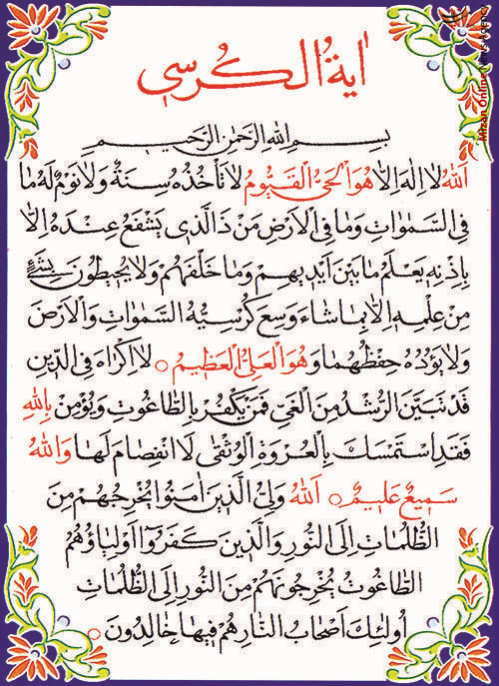 اٰيَةُ الْكُرْسِي
بِسْمِ اللهِ الرَّحْمٰنِ الرَّحيمِ
اَللهُ لا اِلٰهَ اِلاّٰ هُوَ الْحَىُّ الْقَيُّومُ لا تَأْخُذُهُ سِنَةٌ وَلا نَوْمٌ لَهُ مٰا
فِى السَّمٰوٰاتِ وَمٰا فِى الْاَرْضِ مَنْ ذَا الَّذى يَشْفَعُ عِنْدَهُ اِلاّٰ
بِاِذْنِهِ يَعْلَمُ مٰا بَيْنَ اَيْديهِمْ وَمٰا خَلْفَهُمْ وَلا يُحيطُونَ بِشَىْءٍ
مِنْ عِلْمِهِ اِلاّٰ بِمٰا شٰاءَ وَسِعَ كُرْسِيُّهُ السَّمٰوٰاتِ وَالْاَرْضَ
وَلا يَؤُدُهُ حِفْظُهُمٰا وَهُوَ الْعَلِىُّ الْعَظيمُ ○ لا اِكْرٰاهَ فِى الدّينِ
قَدْ تَبَيَّنَ الرُّشْدُ مِنَ الْغَىِّ فَمَنْ يَكْفُرْ بِالطّٰاغُوتِ وَيُؤْمِنْ بِاللهِ
فَقَدِ اسْتَمْسَكَ بِالْعُرْوَةِ الْوُثْقىٰ لَا انْفِصٰامَ لَهٰا وَاللهُ
سَميعٌ عَليمٌ ○ اَللهُ وَلِىُّ الَّذينَ اٰمَنُوا يُخْرِجُهُمْ مِنَ
الظُّلُمٰاتِ اِلَى النُّورِ وَالَّذينَ كَفَرُوا اَوْلِيٰاؤُهُمُ
الطّٰاغُوتُ يُخْرِجُونَهُمْ مِنَ النُّورِ اِلَى الظُّلُمٰاتِ
اُولٰئِكَ اَصْحٰابُ النّٰارِ هُمْ فيهٰا خٰالِدُونَ ○
Mizan Online